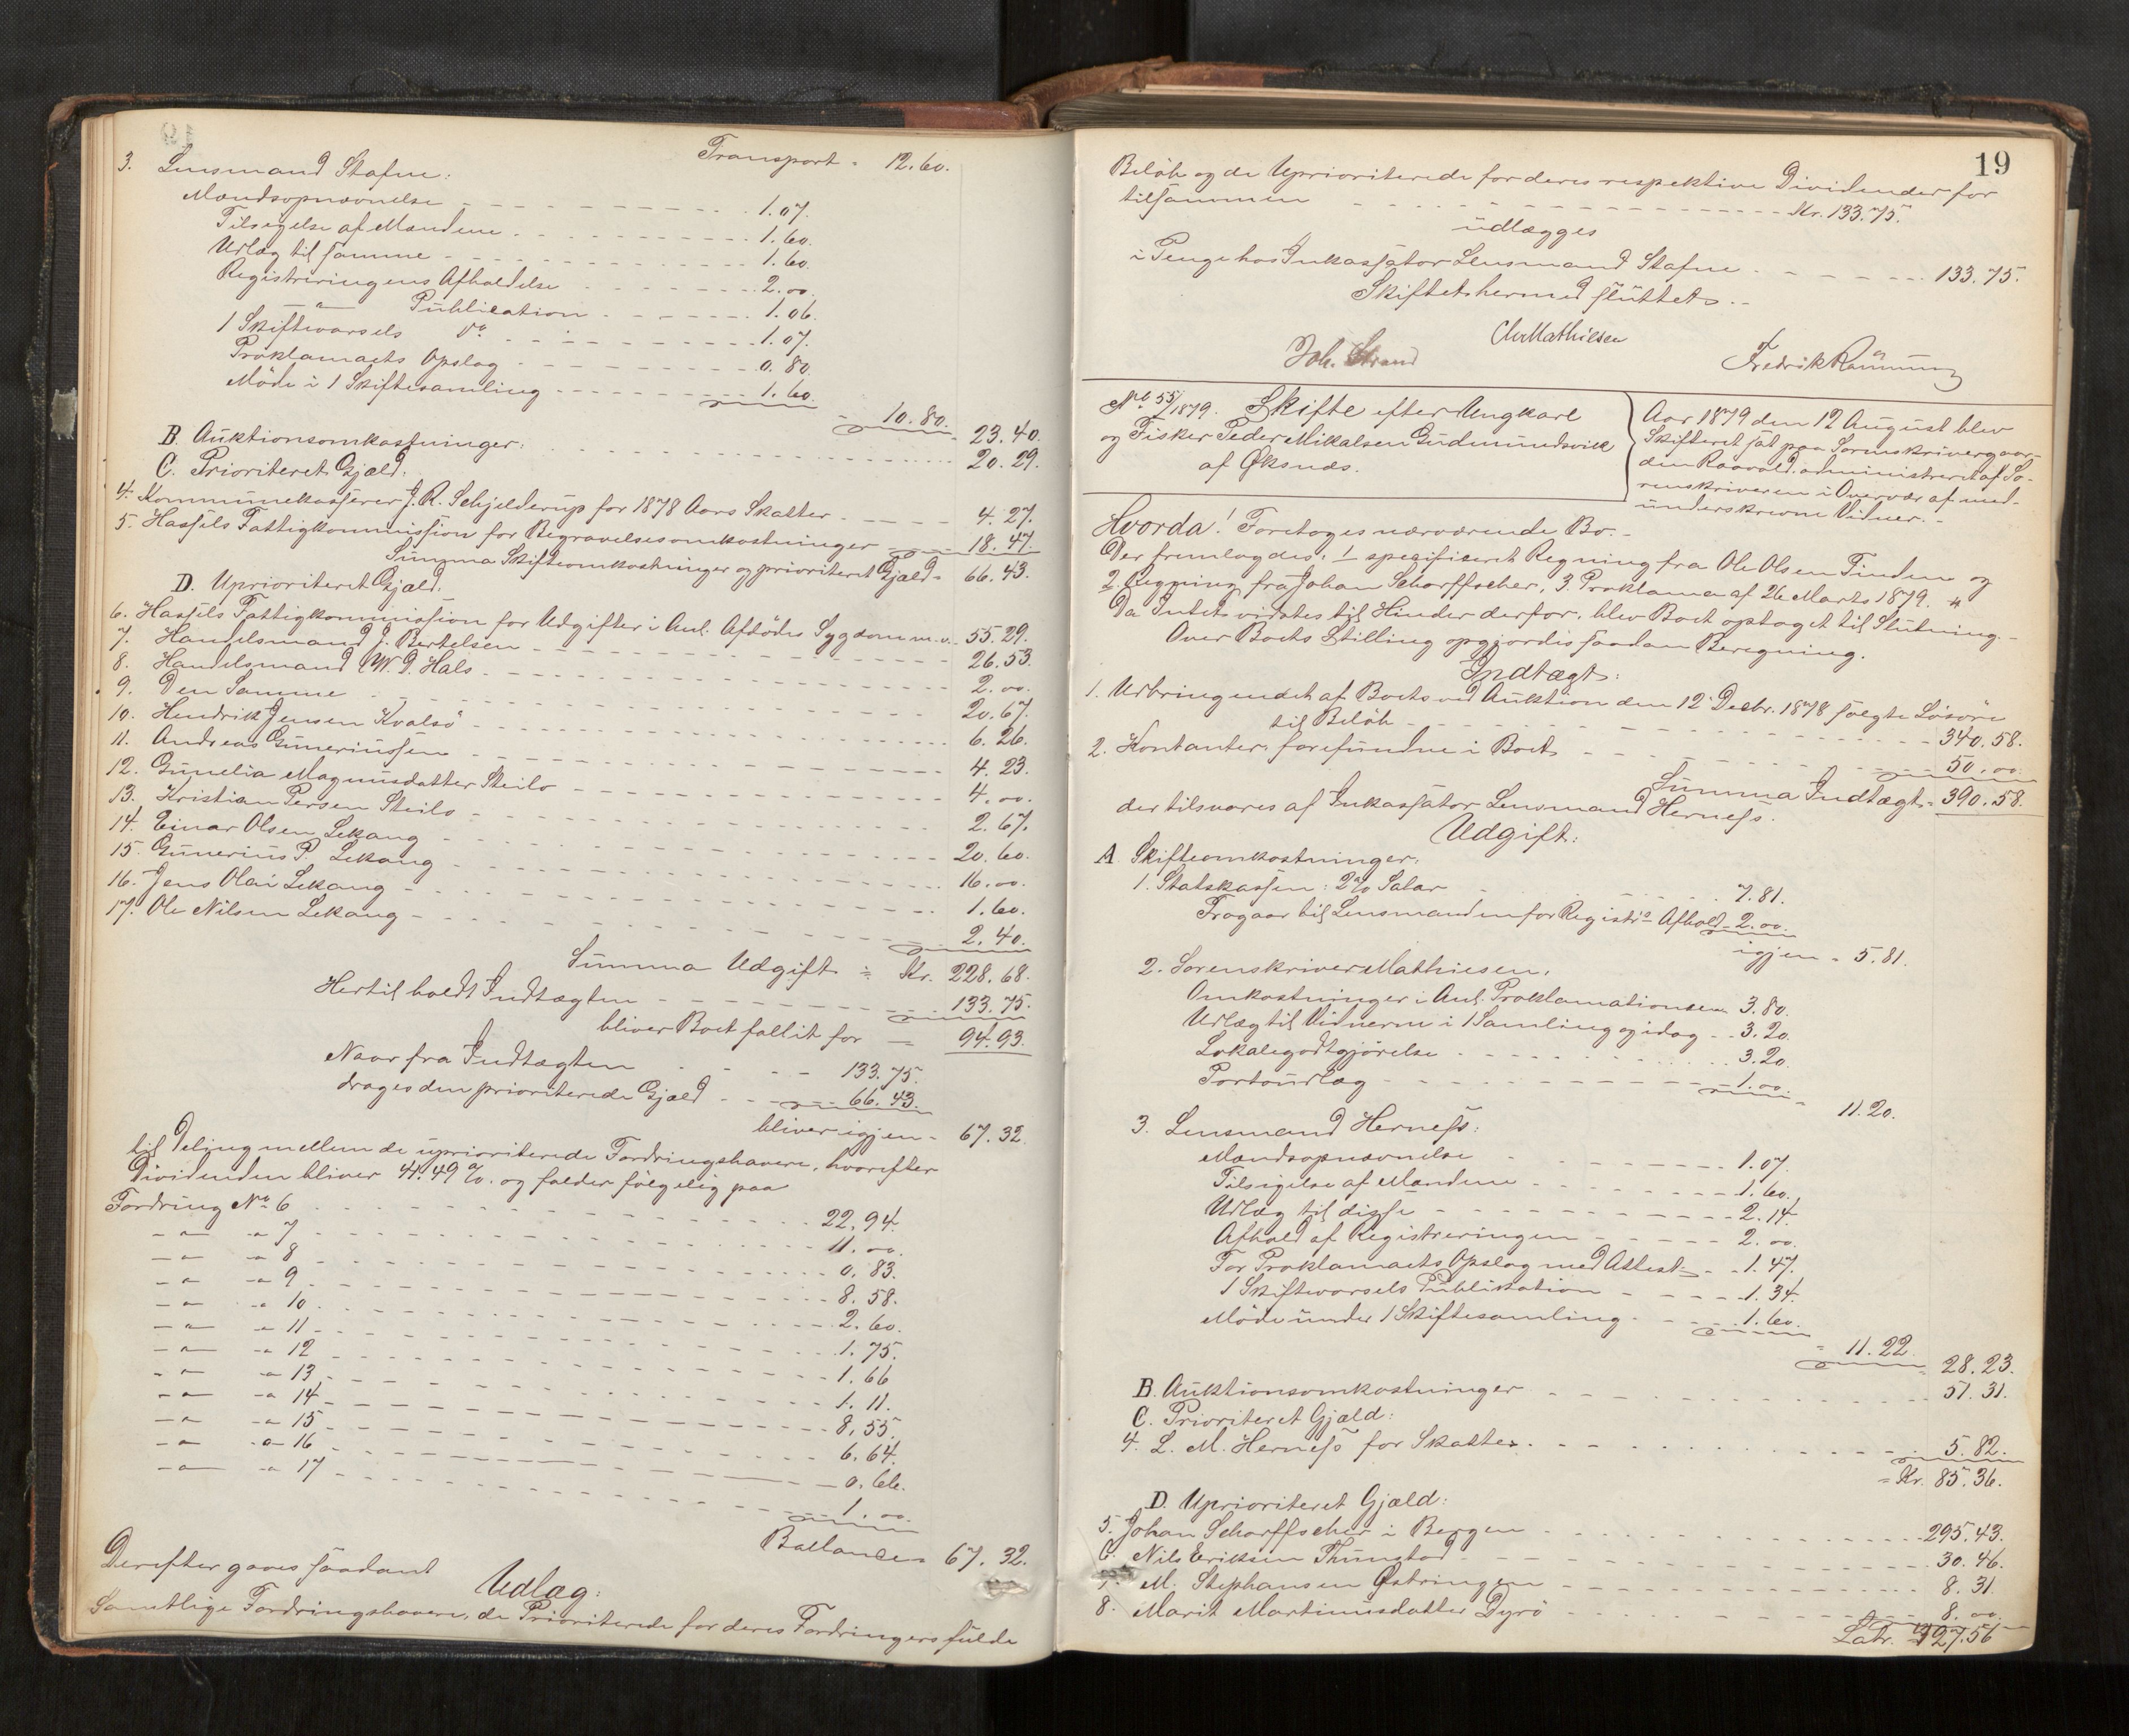 Transport = 12.60.
3. Lensmand Stafne:
Mandsopnævnelse 1.07.
Tilsigelse af Mændene 1.60.
Udlæg til samme 1.60.
Registreringens Afholdelse 2.00.
—"— Publication 1.06.
1 Skiftevarsels do 1.07.
Proklamaets Opslag 0.80.
Möde i 1 Skiftesamling 1.60.
= 10.80.
= 23.40.
B. Auktionsomkostninger: 20.29.
C. Prioriteret Gjæld:
4. Kommunekasserer J. R. Schjelderup for 1878 Aars Skatter 4.27.
5. Hassels Fattigkommission for Begravelsesomkostninger 18.47.
Summa Skifteomkostninger og prioriteret Gjæld = 66.43.
D. Uprioriteret Gjæld:
6. Hassels Fattigkommission for Udgifter i Anl. Afdødes Sygdom m.v. 55.29.
7. Handelsmand J. Bertelsen 26.53.
8. Handelsmand W. D. Hals 2.00.
9. Den Samme 20.67.
10. Hendrik Jensen Kvalsö 6.26.
11. Andreas Guneriussen 4.23.
12. Gunelia Magnusdatter Steilo 4.00.
13. Kristian Persen Steilo 2.67.
14. Einar Olsen Lekang 20.60.
15. Gunerius P. Lekang 16.00.
16. Jens Olai Lekang 1.60.
17. Ole Nilsen Lekang 2.40.
Summa Udgift = Kr. 228.68.
Hertil holdt Indtægten 133.75.
bliver Boet fallit for — 94.93.
Naar fra Indtægten 133.75.
drages den prioriterede Gjæld 66.43.
bliver igjen = 67.32.
til Deling mellem de uprioriterede Fordringshavere, hvorefter
Dividenden bliver 41.49 %. og falder følgelig paa
Fordring No 6 22.94.
—"— -"- 7 11.00.
—"— -"- 8 0.83.
—"— -"- 9 8.58.
—"— -"- 10 2.60.
—"— -"- 11 1.75.
—"— -"- 12 1.66
—"— -"- 13 1.11.
—"— -"- 14 8.55.
—"— -"- 15 6.64.
—"— -"- 16 0.66.
—"— -"- 17 1.00.
Ballance = 67.32.
Derefter gaves saadant
Udlæg:
Samtlige Fordringshavere, de Prioriterede for deres Fordringers fulde
19
Beløb og de Uprioriterede for deres respektive Dividender for
tilsammen Kr. 133.75.
udlægges
i Penge hos Inkassator Lensmand Stafne 133.75.
Skiftet hermed sluttet.
Chr Mathiesen
Joh. Strand
Fredrik
No 55/1879. Skifte efter Ungkarl
og Fisker Peder Mikalsen Gudmundsvik
af Øksnæs.
Aar 1879 den 12 August blev
Skifteret sat paa Sorenskrivergaar-
den Raavold. administreret af So-
renskriveren i Overvær af med-
underskrevne Vidner.
Hvorda! Foretoges nærværende Bo.
Der fremlagdes: 1 specificeret Regning fra Ole Olsen Tinden og
2 Regning fra Johan Scharffscher, 3. Proklama af 26 Marts 1879.
Da Intet vidstes til Hinder derfor, blev Boet optaget til Slutning.
Over Boets Stilling opgjordes saadan Beregning.
Indtægt:
1. Udbringendet af Boets ved Auktion den 12 Decbr. 1878 solgte Løsøre
til Beløb 340.58.
2. Kontanter forefundne i Boet 50.00.
Summa Indtægt = 390.58.
der tilsvares af Inkassator Lensmand Herness.
Udgift:
A. Skifteomkostninger.
1. Statskassen: 2% Salær 7.81.
Fragaar til Lensmanden for Registrs Afhold = 2.00.
igjen = 5.81.
2. Sorenskriver Mathiesen.
Omkostninger i Anl. Proklamationen 3.80.
Udlæg til Vidnerne i 1 Samling og idag 3.20.
Lokalegodtgjörelse 3.20.
Portoudlæg 1.00.
= 11.20.
3. Lensmand Herness:
Mandsopnævnelse 1.07.
Tilsigelse af Mændene 1.60.
Udlæg til disse 2.14.
Afhold af Registreringen 2.00.
For Proklamaets Opslag med Attest 1.47.
1 Skiftevarsels Publikation 1.34.
Möde under 1 Skiftesamling 1.60.
= 11.22.
= 28.23.
B. Auktionsomkostninger 51.31.
C. Prioriteret Gjæld:
4. L. M. Herness for Skatter 5.82.
= Kr. 85.36.
D. Uprioriteret Gjæld:
5. Johan Scharffscher i Bergen 295.43.
6. Nils Eriksen Thunstad 30.46.
7. M. Stephansen Østringen 8.31.
8. Marit Martinusdatter Dyrö 8.00.
Latr. 427.56